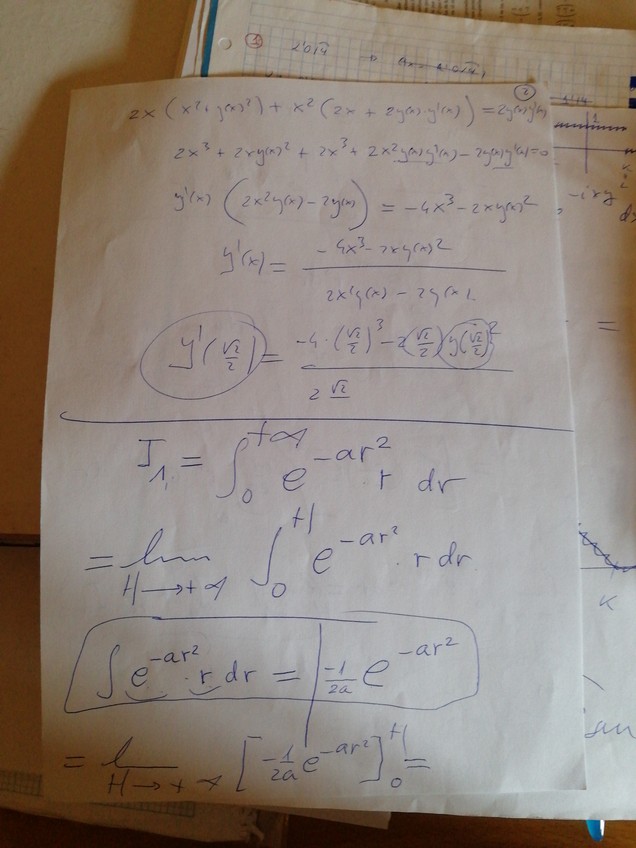 ②
2x (x² + y(x)²) + x² (2x + 2y(x)·y'(x)) = 2y(x)y'(x)
2x³ + 2xy(x)² + 2x³ + 2x²y(x)y'(x) - 2y(x)y'(x) = 0
y'(x) (2x²y(x) - 2y(x)) = -4x³ - 2xy(x)²
y'(x) = (-4x³ - 2xy(x)²) / (2x²y(x) - 2y(x))
y'(√2/2) = (-4·(√2/2)³ - 2(√2/2) y(√2/2)²) / 2 √2
I₁ = ∫₀^{+∞} e^{-ar²} r dr
= lim_{H→+∞} ∫₀^H e^{-ar²} · r dr
∫ e^{-ar²} · r dr = -1/2a e^{-ar²}
= lim_{H→+∞} [-1/2a e^{-ar²}]₀^H =